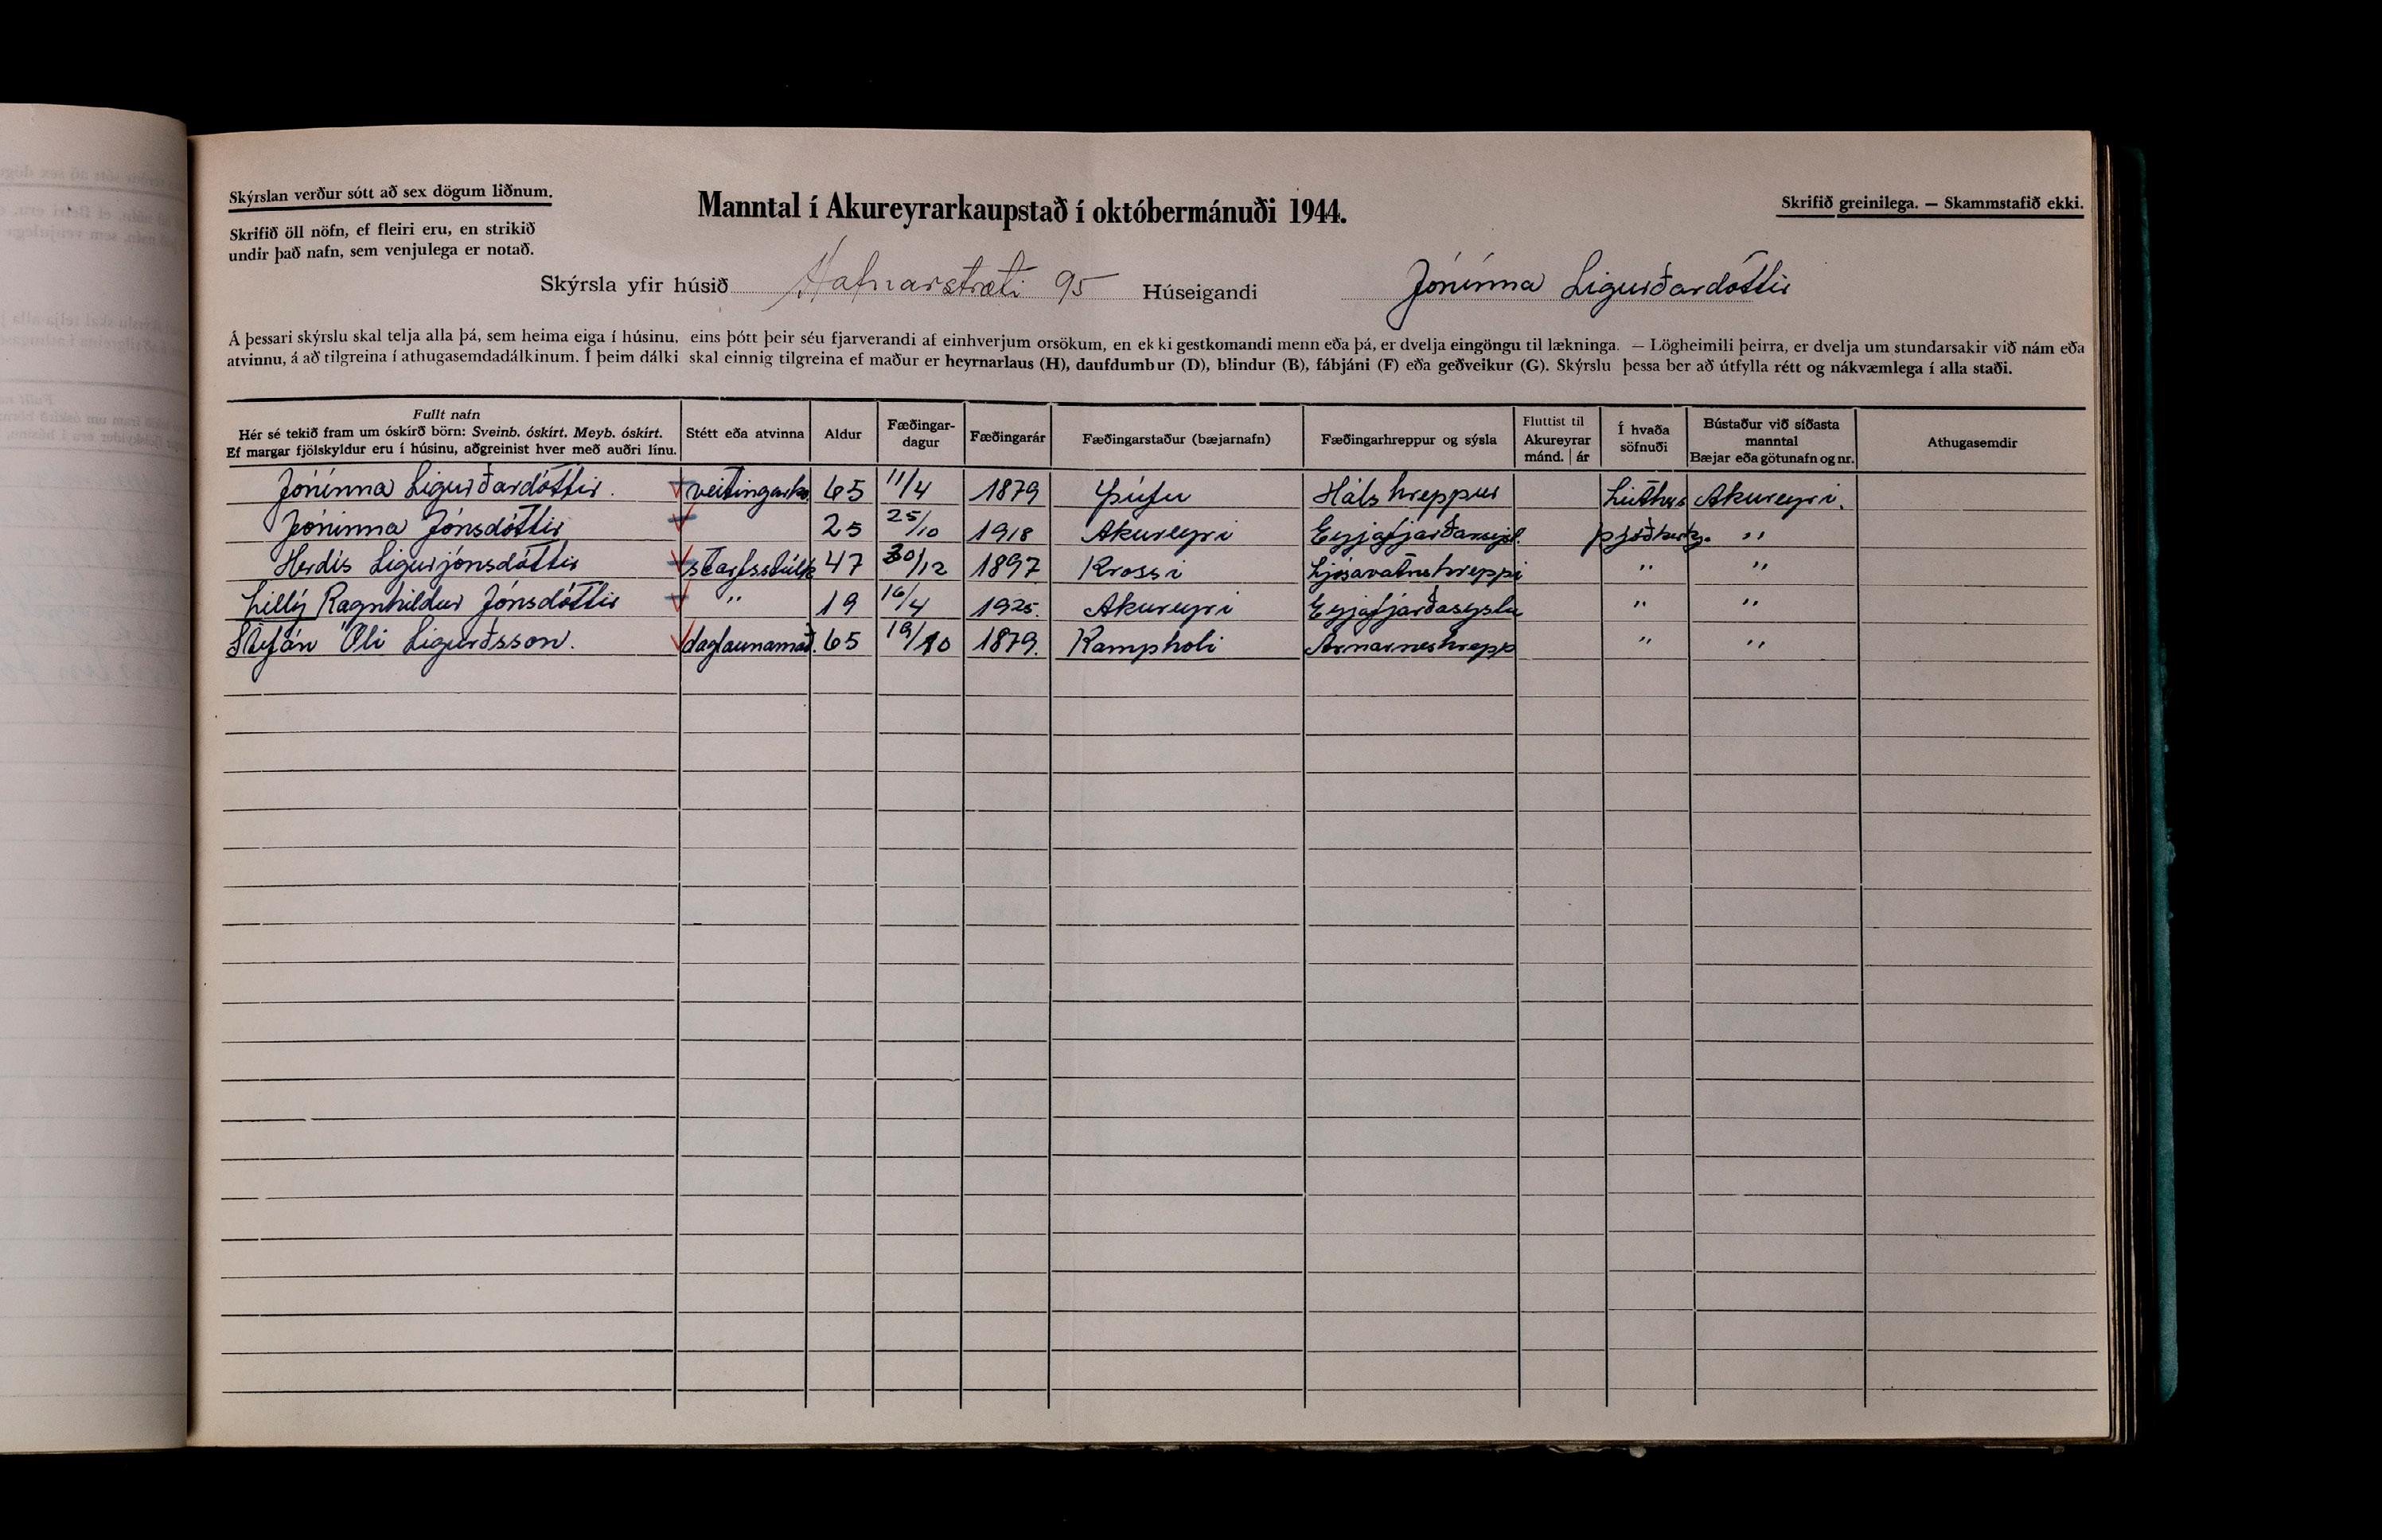 Skýrslan verður sótt að sex dögum liðnum.
Manntal í Akureyrarkaupstað í októbermánuði 1944.
Skrifið greinilega. — Skammstafið ekki.
Skrifið öll nöfn, ef fleiri eru, en strikið
undir það nafn, sem venjulega er notað.
Skýrsla yfir húsið Hafnarstræti 95 Húseigandi Jónínna Sigurðardóttir
Á þessari skýrslu skal telja alla þá, sem heima eiga í húsinu, eins þótt þeir séu fjarverandi af einhverjum orsökum, en ekki gestkomandi menn eða þá, er dvelja eingöngu til lækninga. — Lögheimili þeirra, er dvelja um stundarsakir við nám eða
atvinnu, á að tilgreina í athugasemdadálkinum. Í þeim dálki skal einnig tilgreina ef maður er heyrnarlaus (H), daufdumbur (D), blindur (B), fábjáni (F) eða geðveikur (G). Skýrslu þessa ber að útfylla rétt og nákvæmlega í alla staði.
Fullt nafn
Hér sé tekið fram um óskírð börn: Sveinb. óskírt. Meyb. óskírt.
Ef margar fjölskyldur eru í húsinu, aðgreinist hver með auðri línu.
Stétt eða atvinna
Aldur
Fæðingar-
dagur
Fæðingarár
Fæðingarstaður (bæjarnafn)
Fæðingarhreppur og sýsla
Fluttist til
Akureyrar
mánd. | ár
Í hvaða
söfnuði
Bústaður við síðasta
manntal
Bæjar eða götunafn og nr.
Athugasemdir
Jónínna Sigurðardóttir. veitingark. 65 11/4 1879 Þúfu Hálshreppur Luthers Akureyri.
Jónínna Jónsdóttir 25 25/10 1918 Akureyri Eyjafjarðarsýsl. þjóðkirkj. "
Herdís Sigurjónsdóttir starfsstúlk 47 30/12 1897 Krossi Ljósavatnshreppi " "
Lillý Ragnhildur Jónsdóttir " 19 16/4 1925. Akureyri Eyjafjarðasýslu " "
Stefán Óli Sigurðsson. daglaunamað. 65 19/10 1879. Kampholi Arnarneshrepp " "